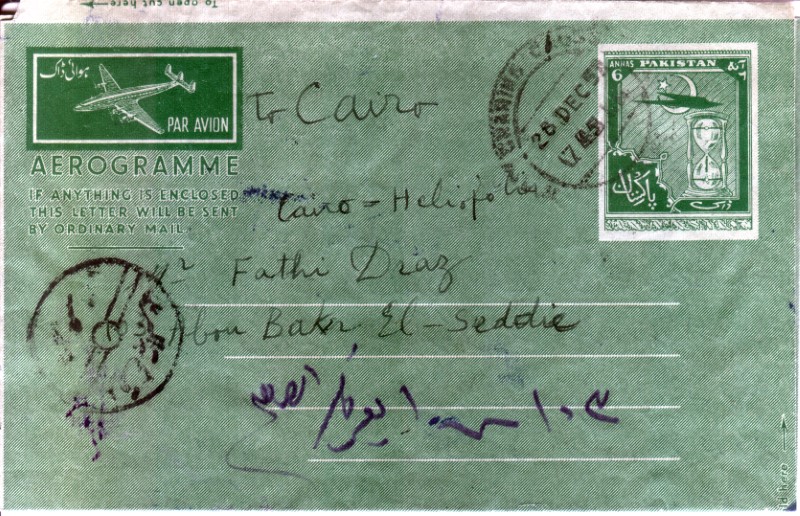 To open cut here
ہوائی ڈاک
PAR AVION
AEROGRAMME
IF ANYTHING IS ENCLOSED
THIS LETTER WILL BE SENT
BY ORDINARY MAIL
To Cairo
Cairo = Heliopolis
Mr Fathi Draz
Abou Bakr El-Seddic
26 DEC 5
ANNAS PAKISTAN
6
پاکستان
ڈاک
١٠٣
here